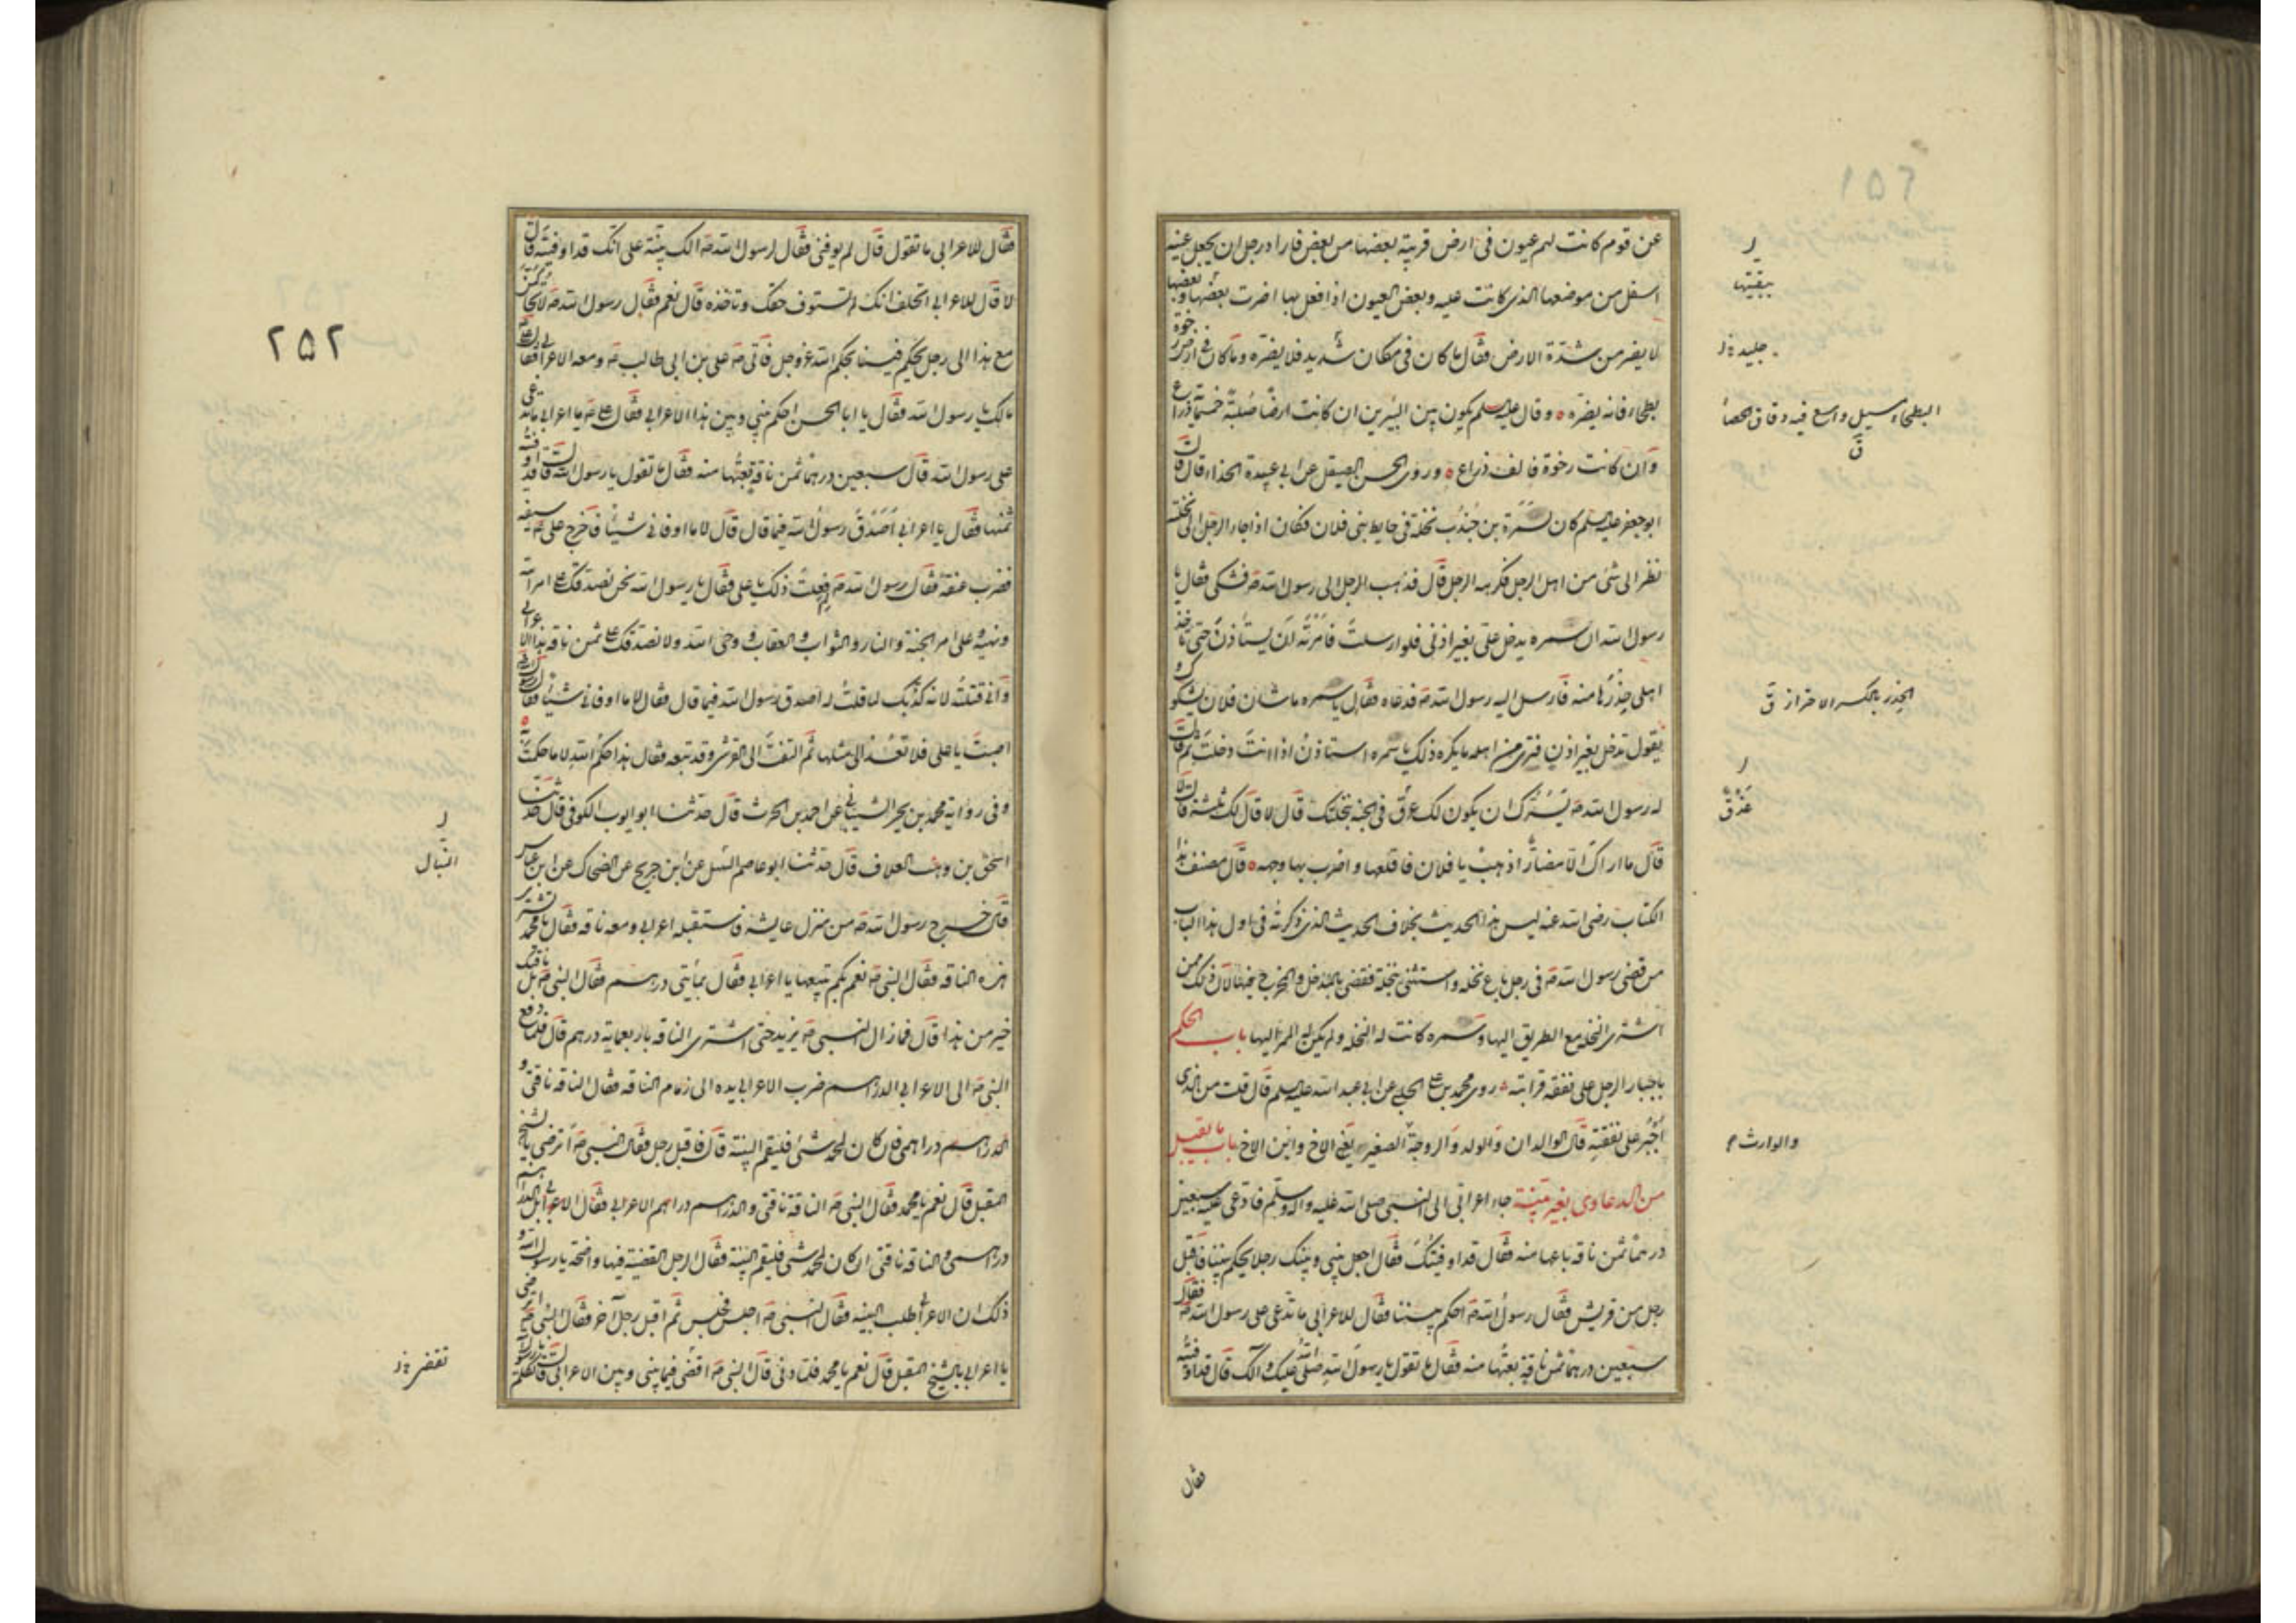 عن قوم كانت لهم عيون فى ارض قريبة بعضها من بعض فاراد رجل ان يجعل عينه
اسفل من موضعها الذى كانت عليه وبعض العيون اذا فعل بها اضرت ببعضها وبعضها
لا يضر من شدة الارض فقال ما كان فى مكان شديد فلا يضره وما كان فى ارض رخوة
بطحاء فانه يضره وقال عليه السلم يكون بين البئرين ان كانت ارضا صلبة خمسمائة ذراع
وان كانت رخوة فالف ذراع وروى الحسن الصيقل عن ابى عبيدة الحذاء قال قال
ابو جعفر عليه السلم كان لسمرة بن جندب نخلة فى حايط بنى فلان فكان اذا جاء الرجل الى نخلته
نظر الى شئ من اهل الرجل فكرهه الرجل قال فذهب الرجل الى رسول الله ص فشكى فقال يا
رسول الله ان سمره يدخل على بغير اذنى فلو ارسلت فامرته ان يستأذن حتى تاخذ
اهلى حذرها منه فارسل اليه رسول الله ص فدعاه فقال يا سمره ما شان فلان يشكوك و
يقول تدخل بغير اذن فترى من اهله ما يكره ذلك يا سمره استاذن اذا انت دخلت ثم قال
له رسول الله ص يسرك ان يكون لك عذق فى الجنه بنخلتك قال لا قال لك ثلثة قال لا
قال ما اراك الا مضارا اذهب يا فلان فاقلعها واضرب بها وجهه قال مصنف هذا
الكتاب رضى الله عنه ليس هذا الحديث بخلاف الحديث الذى ذكرته فى اول هذا الباب
من قضى رسول الله ص فى رجل باع نخله واستثنى نخلة فقضى بالمدخل والمخرج منها لان ذلك ممن
اشترى النخله مع الطريق اليها وسمره كانت له النخله ولم يكن له الممر اليها باب الحكم
باجبار الرجل على نفقه قرابته روى محمد بن على الحلبى عن ابى عبد الله عليه السلم قال قلت من الذى
اجبر على نفقته قال الوالدان والولد والزوجة الصغير يعنى الاخ وابن الاخ باب ما يقبل
من الدعاوى بغير بينة جاء اعرابى الى النبى صلى الله عليه واله وسلم فادعى عليه سبعين
درهما ثمن ناقه باعها منه فقال قد اوفيتك فقال اجعل بينى وبينك رجلا يحكم بيننا فاقبل
رجل من قريش فقال رسول الله ص احكم بيننا فقال للاعرابى ما تدعى على رسول الله ص فقال
سبعين درهما ثمن ناقة بعتها منه فقال ما تقول يا رسول الله صلى الله عليك والك قال قد اوفيته
فقال
٢٥١
ببقيتها
جليد خ ل
البطحاء مسيل واسع فيه دقاق الحصا
ق
الحذر بالكسر الاحتراز ق
عذق
والوارث
فقال للاعرابى ما تقول قال لم يوفنى فقال لرسول الله ص الك بينة على انك قد اوفيته قال
لا قال للاعرابى اتحلف انك لم تستوف حقك وتاخذه قال نعم فقال رسول الله ص لاتحاكمن
مع هذا الى رجل يحكم فينا بحكم الله عز وجل فاتى ص على بن ابى طالب ع ومعه الاعرابى فقال على ع
مالك يا رسول الله فقال يا ابا الحسن احكم بينى وبين هذا الاعرابى فقال على ع يا اعرابى ما تدعى
على رسول الله قال سبعين درهما ثمن ناقة بعتها منه فقال ما تقول يا رسول الله قال قد اوفيته
ثمنها فقال يا اعرابى اصدق رسول الله فيما قال قال لا ما اوفانى شيئا فاخرج على ع سيفه
فضرب عنقه فقال رسول الله ص لم فعلت ذلك يا على فقال يا رسول الله نحن نصدقك على امر الله
ونهيه وعلى امر الجنة والنار والثواب والعقاب ووحى الله ولا نصدقك على ثمن ناقه هذا الاعرابى
وانى قتلته لانه كذبك لما قلت له اصدق رسول الله فيما قال فقال لا ما اوفانى شيئا فقال رسول الله ص
اصبت يا على فلا تعد الى مثلها ثم التفت الى القرشى وقد تبعه فقال هذا حكم الله لا ما حكمت به
وفى رواية محمد بن بحر الشيبانى عن احمد بن الحرث قال حدثنا ابو ايوب الكوفى قال حدثنا
اسحق بن وهب العلاف قال حدثنا ابو عاصم النبل عن ابن جريح عن الضحاك عن ابن عباس
قال خرج رسول الله ص من منزل عايشه فاستقبله اعرابى ومعه ناقه فقال يا محمد تشترى
هذه الناقه فقال النبى ص نعم بكم تبيعها يا اعرابى فقال بمأتى درهم فقال النبى ص بل ناقتك
خير من هذا قال فما زال النبى ص يزيد حتى اشترى الناقه باربعمايه درهم قال فلما دفع
النبى ص الى الاعرابى الدراهم ضرب الاعرابى يده الى زمام الناقه فقال الناقه ناقتى و
الدراهم دراهمى فان كان لمحمد شئ فليقم البينة قال فاقبل رجل فقال النبى ص اترضى بالشيخ
المقبل قال نعم يا محمد فقال النبى ص الناقة ناقتى والدراهم دراهم الاعرابى فقال الاعرابى بل الدراهم
دراهمى والناقه ناقتى ان كان لمحمد شئ فليقم البينة فقال الرجل القضية فيها واضحة يا رسول الله و
ذلك ان الاعرابى طلب البينه فقال النبى ص اجلس فجلس ثم اقبل رجل آخر فقال النبى ص اترضى
يا اعرابى بالشيخ المقبل قال نعم يا محمد فلما دنى قال النبى ص اقض فيما بينى وبين الاعرابى قال تكلم يا رسول
٢٥٢
النبال
تقضى خ ل